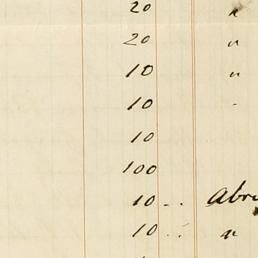 20 "
20 "
10 "
10 -
10
100
10 . .
10 . . "